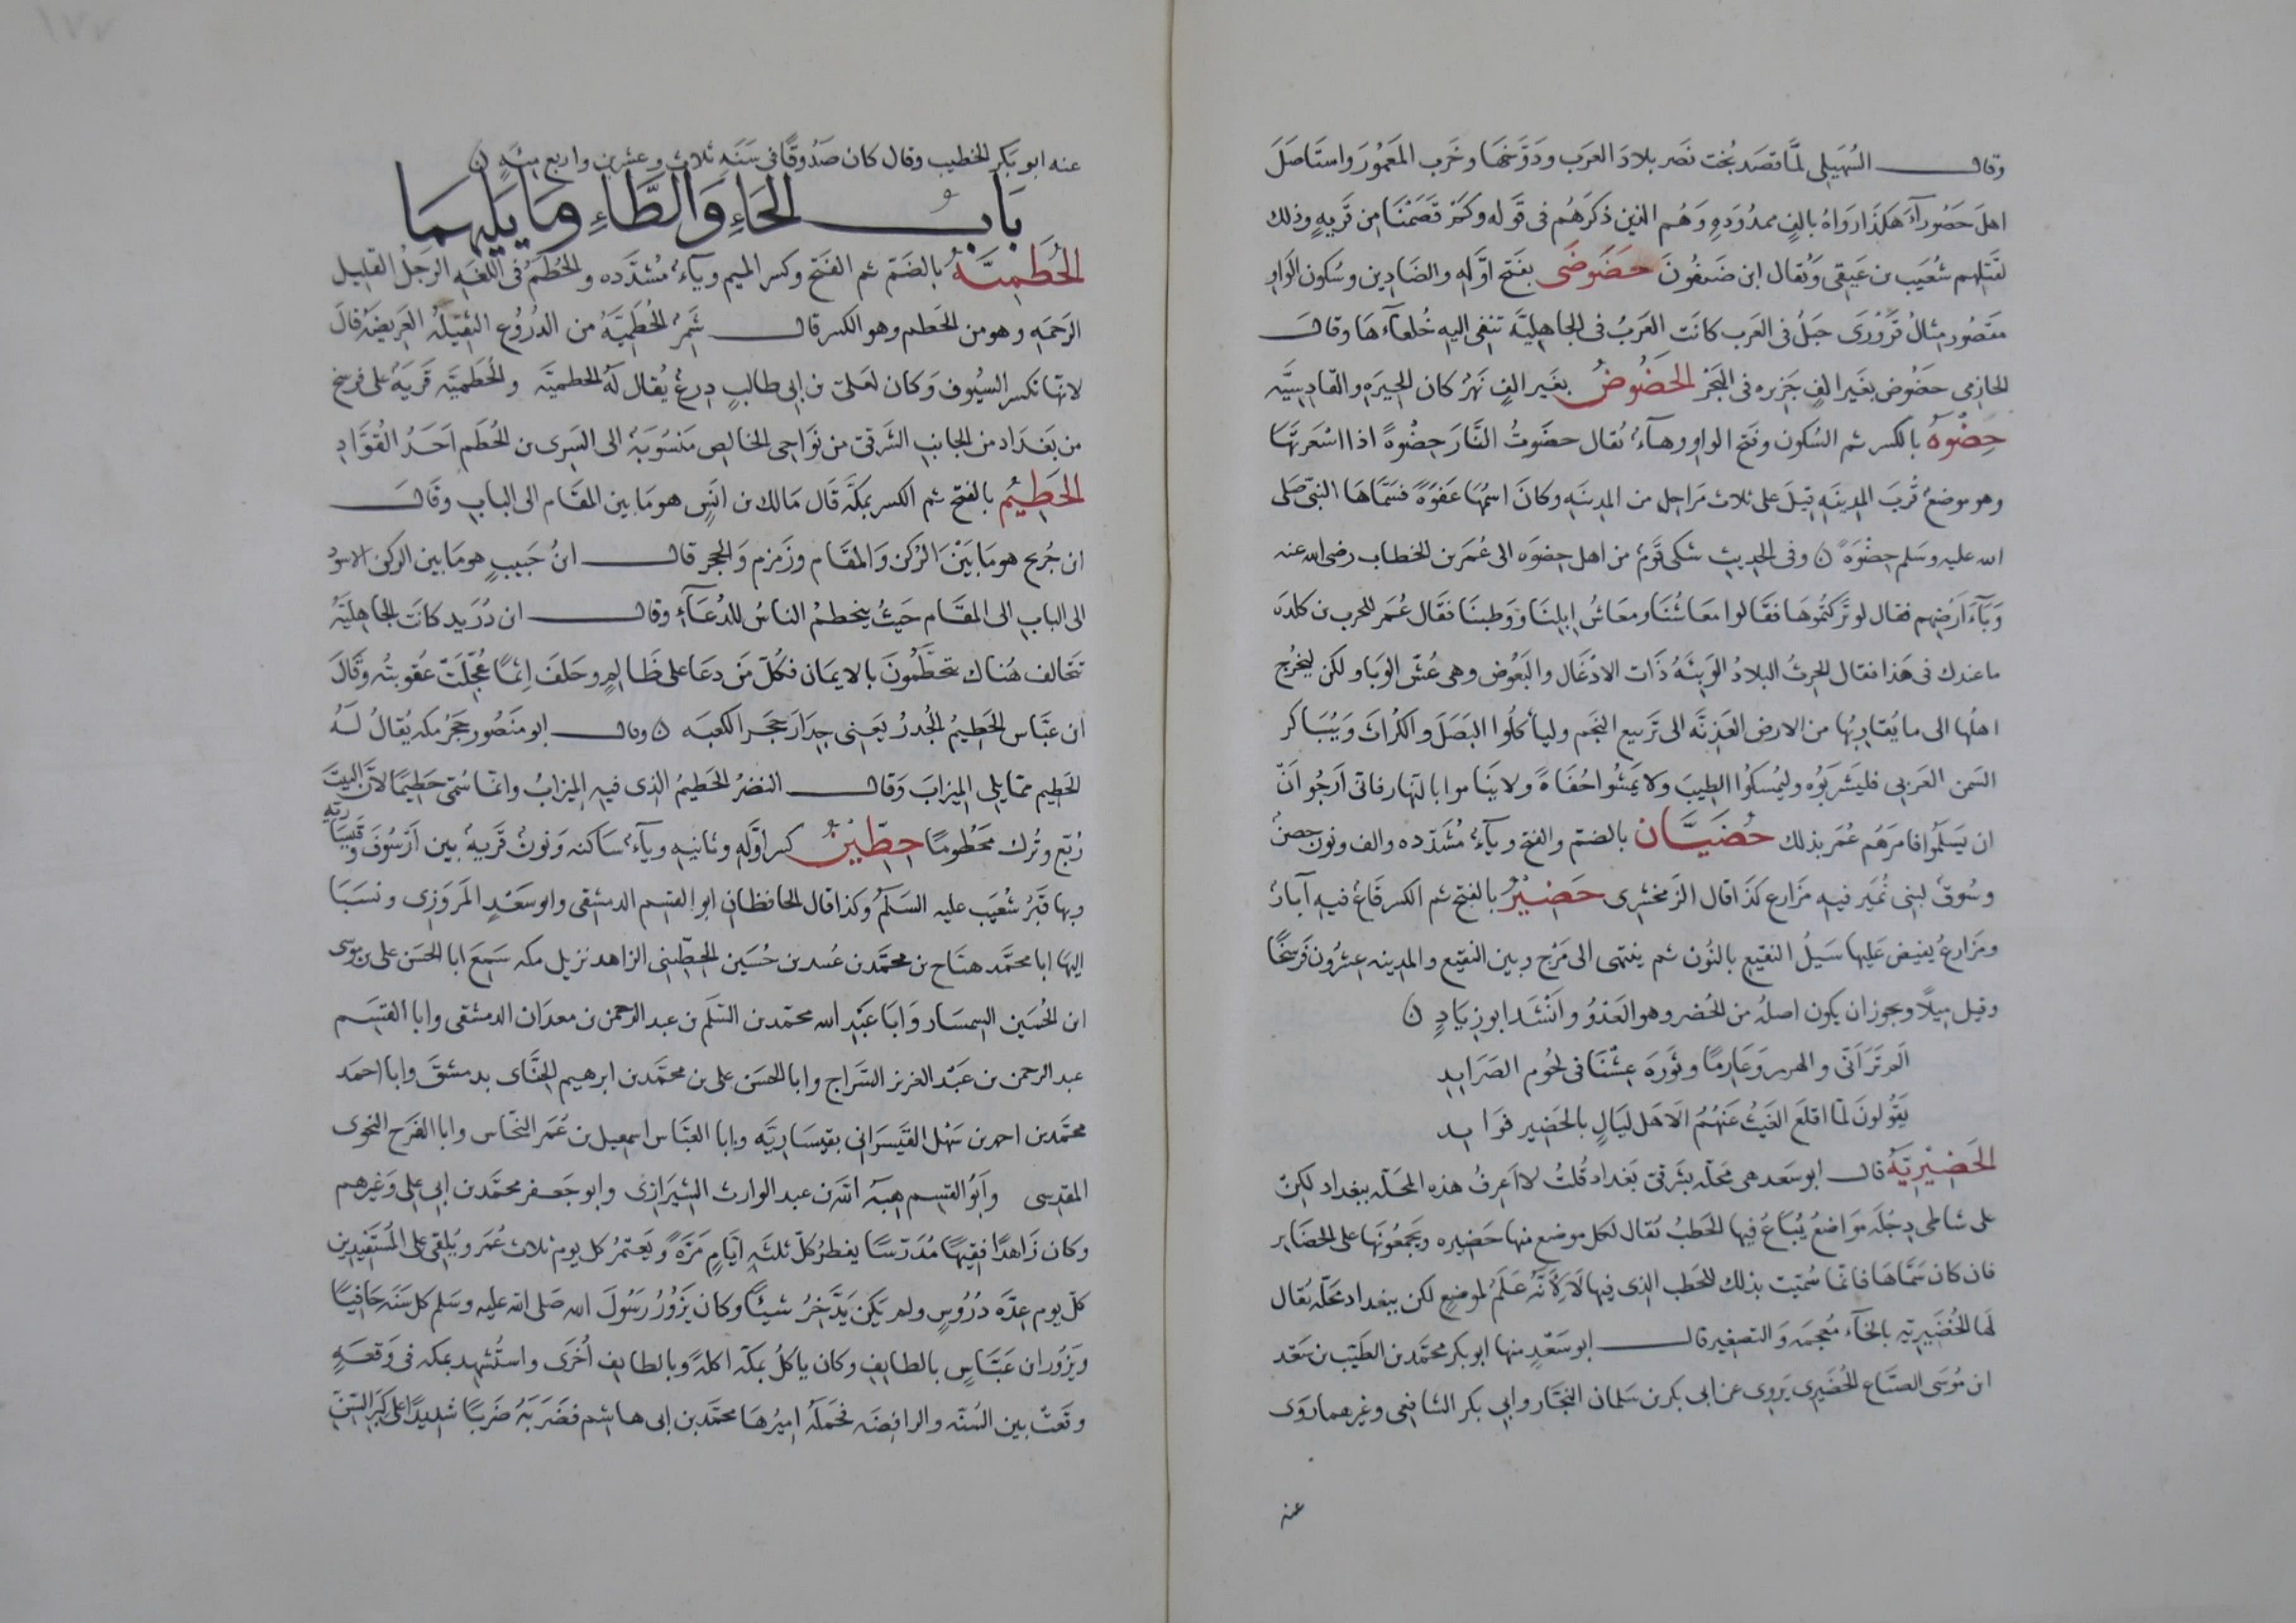 وقال السُهَيلى لمَّا قصَد بُخت نصَر بلادَ العرَب ودَوَّخهَا وخَرب المَعمُورَ واستَاصَلَ
اهلَ حَضُورآءَ هكذَا روَاهُ بالفٍ ممدُودَهِ وَهُم الذين ذكرَهُم فى قَوله وكَم قصَمْنَا من قَريهٍ وذلك
لقَتلِهم شُعَيب بن عَيقى وَيُقال ابن ضَيفُونَ حَضَوضَى بفَتح اوَّله والضَادين وسُكون الوَاوِ
مقصُور مِثالُ قَرَوْرَى جَبلُ فى العَرب كانَت العَربُ فى الجاهِليَّة تنفى اليهِ خُلعآءهَا وقالَ
الحازمى حَضُوض بغَير الفٍ جَزيره فى البَحْر الحَضُوضُ بغَير الفٍ نَهرُ كان الحِيرَهِ والقَادسِيَّه
حِضْوَهُ بالكسر ثم السُكون وفتح الواو وهآءُ يُقال حضَوتُ النَّارَ حِضْوهً اذا اسْعَرتَهَا
وهو موضعُ قُربَ المدِينَهِ قيلَ على ثلاث مَراحِل من المدِينَهِ وكانَ اسمُهَا عَفوَهً فسَمَّاهَا النبىّ صَلى
الله عليه وسَلم حِضْوَهً ن وفى الحديثِ شكى قَومُ من اهل حِضوَه الى عُمَر بن الخطاب رضى الله عنه
وَبآءَ ارَضهِم فقال لو تَركتُموهَا فقَالوا معَاشُنَا ومعَاشُ اِبِلنَا ووَطننَا فقَال عُمَر للحرب بن كلدَه
ما عندك فى هَذا فقال الحرثُ البلادُ الوَبئَةُ ذَات الادْغَال والبَعُوض وهى عُشّ الوَبَا ولكن ليَخرُج
اهلُهَا الى ما يُقارِبُهَا من الارضِ العَذِيَّه الى تَربيع النجَم وليأكلُوا البَصَل والكُراثَ وَيُبَاكر
السَمن العَربى فليَشربُوه وليُمسكوُا الطِيبَ وَلا يمَشُوا حُفَاةً ولا ينَاموا بالنهَار فانى ارَجُوا اَنّ
ان يَسلَمُوا فامرَهُم عُمَر بذلك حُضَيَّان بالضمّ والفتح ويآءُ مُشَدّده والف ونون حصنُ
وسُوقُ لبنى نُمَير فيهِ مَزارع كذَا قال الزَمخشرِى حَضِيْرُ بالفَتح ثم الكسر قَاعُ فيهِ آبَارُ
ومَزارعُ يفيض عَليهَا سَيلُ النقيعِ بالنُون ثم ينتهى الى مَزج وبين النقيع والمدِينه عِشرُون فَرسخًا
وقيل مِيلًا ويجوز ان يكون اصلُهُ من الحُضر وهو العَدْوُ وانَشَدَ ابو زيَادٍ ن
الَم تَرَانّى والهرير وَعَارِمًا وثَورَهَ عِشْنَا فى لحُوم الصَرَايدِ
يَقُولونَ لمَّا اقلعَ الغَيثُ عَنهُمُ اَلَا هَل ليَالٍ بالحَضِير عَوَايد
الحَضِيْرِيّةُ قال ابو سَعد هى محَلّه بشَرقى بَغداد قُلتُ لا اَعرِفُ هذه المحَلّه ببغداد لكِنّ
على شاطى دِجلَه مَوَاضعُ يُبَاعُ فيهَا الحَطبُ يُقال لكل موضع منها حَضِيره ويَجمعُونَهَا على الحضَاير
فان كان سَمَّاهَا فانّمَا سُميّت بذلك للحَطب الذِى فيهَا لَا لِاَنَّهُ عَلَمُ لموضعٍ لكن ببغداد محَلّه يُقال
لهَا الخُضَيرِيّه بالخآء مُعجمه وَالتصغير قال ابو سَعْدٍ منها ابو بكر محمّد بن الطَيّب بن سَعْد
ابن مُوسَى الصبَّاغ الحُضَيرِى يَروِى عن ابى بكر بن سَلمان النجّار وابى بكر الشافعى وغيرهما رَوَى
عنه
عنه ابو بكر الخطيب وقال كان صَدُوقًا فى سَنَهِ ثلاث وعشرين واربع مِئَهٍ ن
بَابُ الحَاءِ وَالطَّاءِ ومَا يَليهمَا
الحُطَمِيَّهُ بالضَمّ ثم الفَتح وكسر الميم ويآءُ مُشدّده والحُطَمُ فى اللغَهِ الرجَلُ القليل
الرَحمَهِ وهو من الحَطم وهو الكسر قال شَمِرُ الحُطَمِيّةُ من الدرُوع الثقيلَهُ العَريضَةُ قالَ
لانهَّا تكسر السيُوف وَكان لعَلىّ بن ابى طالبٍ دِرعُ يُقال لَهُ الحطميّه والحُطَميّه قَريَهُ على فرسخ
من بَغدَاد من الجانب الشَرقىّ من نَوَاحى الخالِص مَنسُوبَهُ الى السَرِى بن الحُطَم اَحَدُ القُوَّادِ
الحَطِيْمُ بالفتح ثم الكسر بمكَّه قَال مَالك بن انَسٍ هو مَا بين المقَام الى البابِ وقَالَ
ابن جُريح هو مَا بَيْنَ الرُكن وَالمقَام وزَمزم وَالحجر قال ابنُ حَبيبٍ هو مَا بين الركن الاسود
الى البابِ الى المقَام حَيثُ ينحَطمُ الناسُ للدُعَآءِ وقال ابن دُرَيد كانَت الجاهليَّهُ
تتَحالف هُناك يَحطِّمُونَ بالايمَان فكُلّ مَن دعَا على ظَالِمٍ وحَلفَ اِثمًا عُجِّلَتْ عُقوبتُه وَقَالَ
ابن عبَّاس الحَطِيمُ الجُدرُ يعَنِى جِدَارَ حَجَر الكعبَه ن وقال ابو منَصُور حَجَرُ مكه يُقَالُ لَهُ
الحَطِيم ممّا يلى الميزابَ وَقال النضرُ الحَطيمُ الذِى فيهِ الميزابُ وانمَّا سُمّى حَطِيمًا لانَّ البيتَ
رُبّع وتُرك مَحْطُومًا حِطّيْنُ كسر اوَّلهِ وثانيهِ ويآءُ سَاكنه وَنونُ قَريهُ بين اَرَسُوفَ وقَيسَاريّهِ
وبها قبَرُ شُعَيب عليه السَلَمُ وكذا قال الحافظان ابو القسِم الدمشقى وابو سَعْدٍ المَروَزِى ونسَبَا
اليهَا ابا محمَّد هيَاج بن محمَّد بن عُبيد بن حُسَين الحِطّينى الزاهد نزيل مكه سَمِعَ ابا الحَسَن على بن موسى
ابن الحُسَين السمسَار وَابَا عَبْدِ الله محمّد بن السّلَم بن عبد الرحمن بن معدَان الدمشقى وابا القسَم
عبد الرحمن بن عَبْد العزيز السَّراج وابا الحسَن على بن محمَّد بن ابرهيم الحِنَّاى بدمشقَ وابا احمَد
محمَّد بن احمد بن سَهْل القَيسَرَانى بقيسَاريَّه وابا العبَّاس اسمعيل بن عُمَر النحّاس وابا الفرَج النحوى
المقدِسى وابَوُ القسِم هبَهُ الله بن عبد الوارث الشِيَرازِى وابو جَعفر محمَّد بن ابى على وغيرهم
وكان زَاهدًا فقيهًا مُدَرّسًا يفطرُ كلّ ثلثَهِ ايّامٍ مَرَّهً ويَعتمُر كل يوم ثلاث عُمَر ويُلقى على المُستَفيدِين
كلّ يوم عِدَّه دُرُوسٍ ولم يَكن يَدَّخِرُ شيئًا وكان يَزُورُ رَسُولَ الله صَلى الله عليه وسَلم كل سَنَه حَافيًا
ويَزورُ ابن عَبَّاسٍ بالطايفِ وكان ياكلُ بمكّه اكلهً وبالطايِف اُخرَى واستُشهِد بمكه فى وَقعَهٍ
وقَعتْ بين السُنّه والرافضَه فحَمَلَهُ امِيرُهَا محمّد بن ابى هاشم فضَرَبَهُ ضَربًا شديدًا على كبَر السِنّ
١٧٧